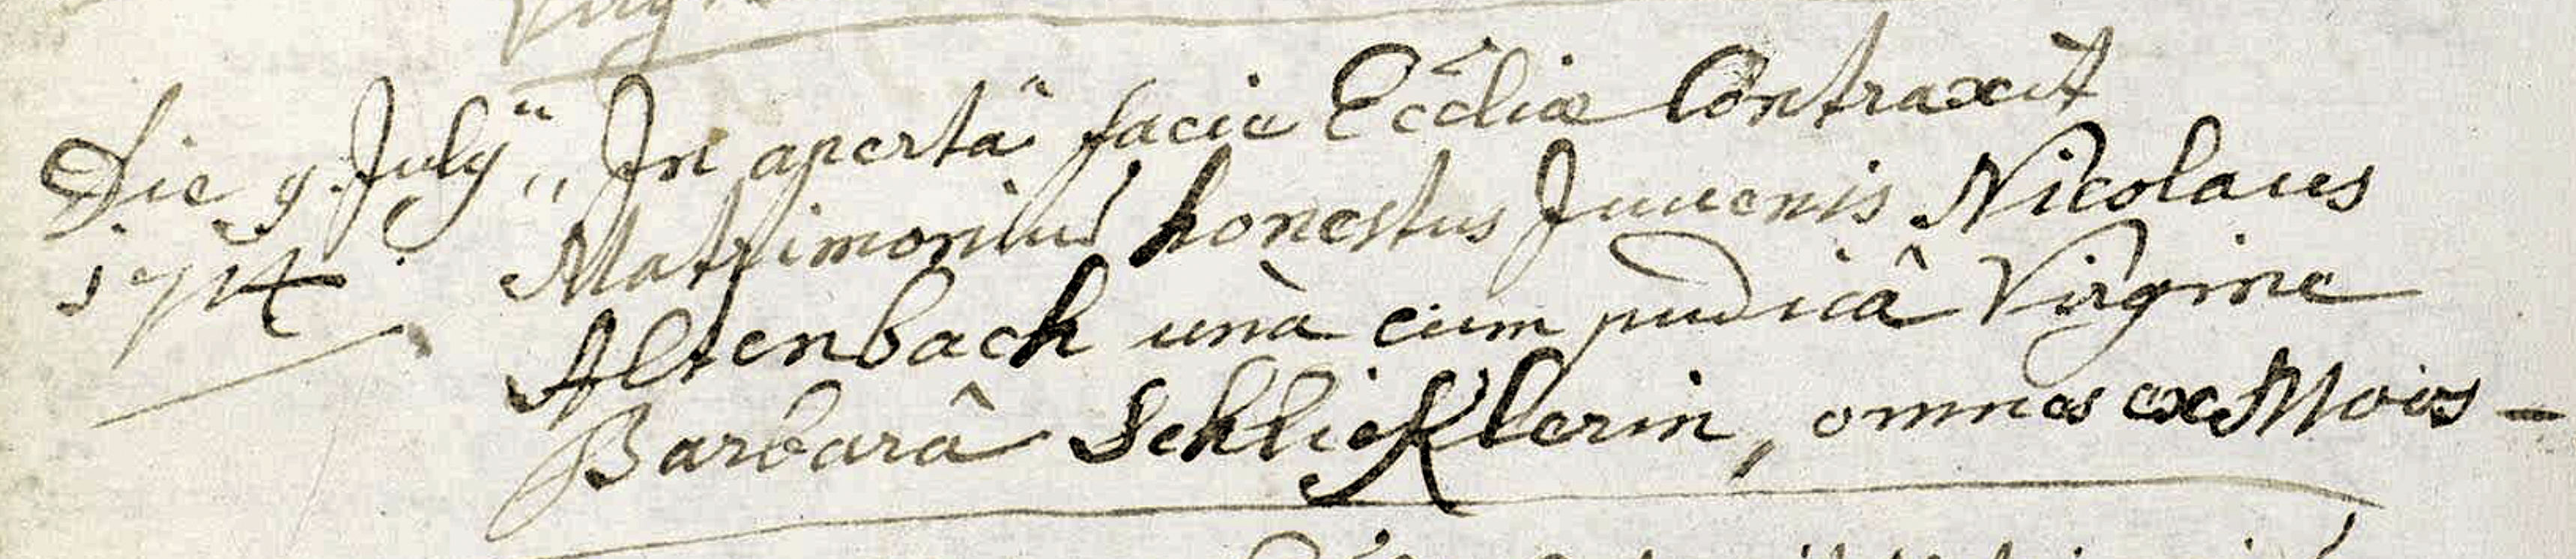 Die 9 July In apertâ facie Ecclîæ Contraxit
1714. Matrimoniu honestus Juvenis Nicolaus
Altenbach unà cum pudicâ Virgine
Barbarâ Schlicklerin, omnes ex Mois